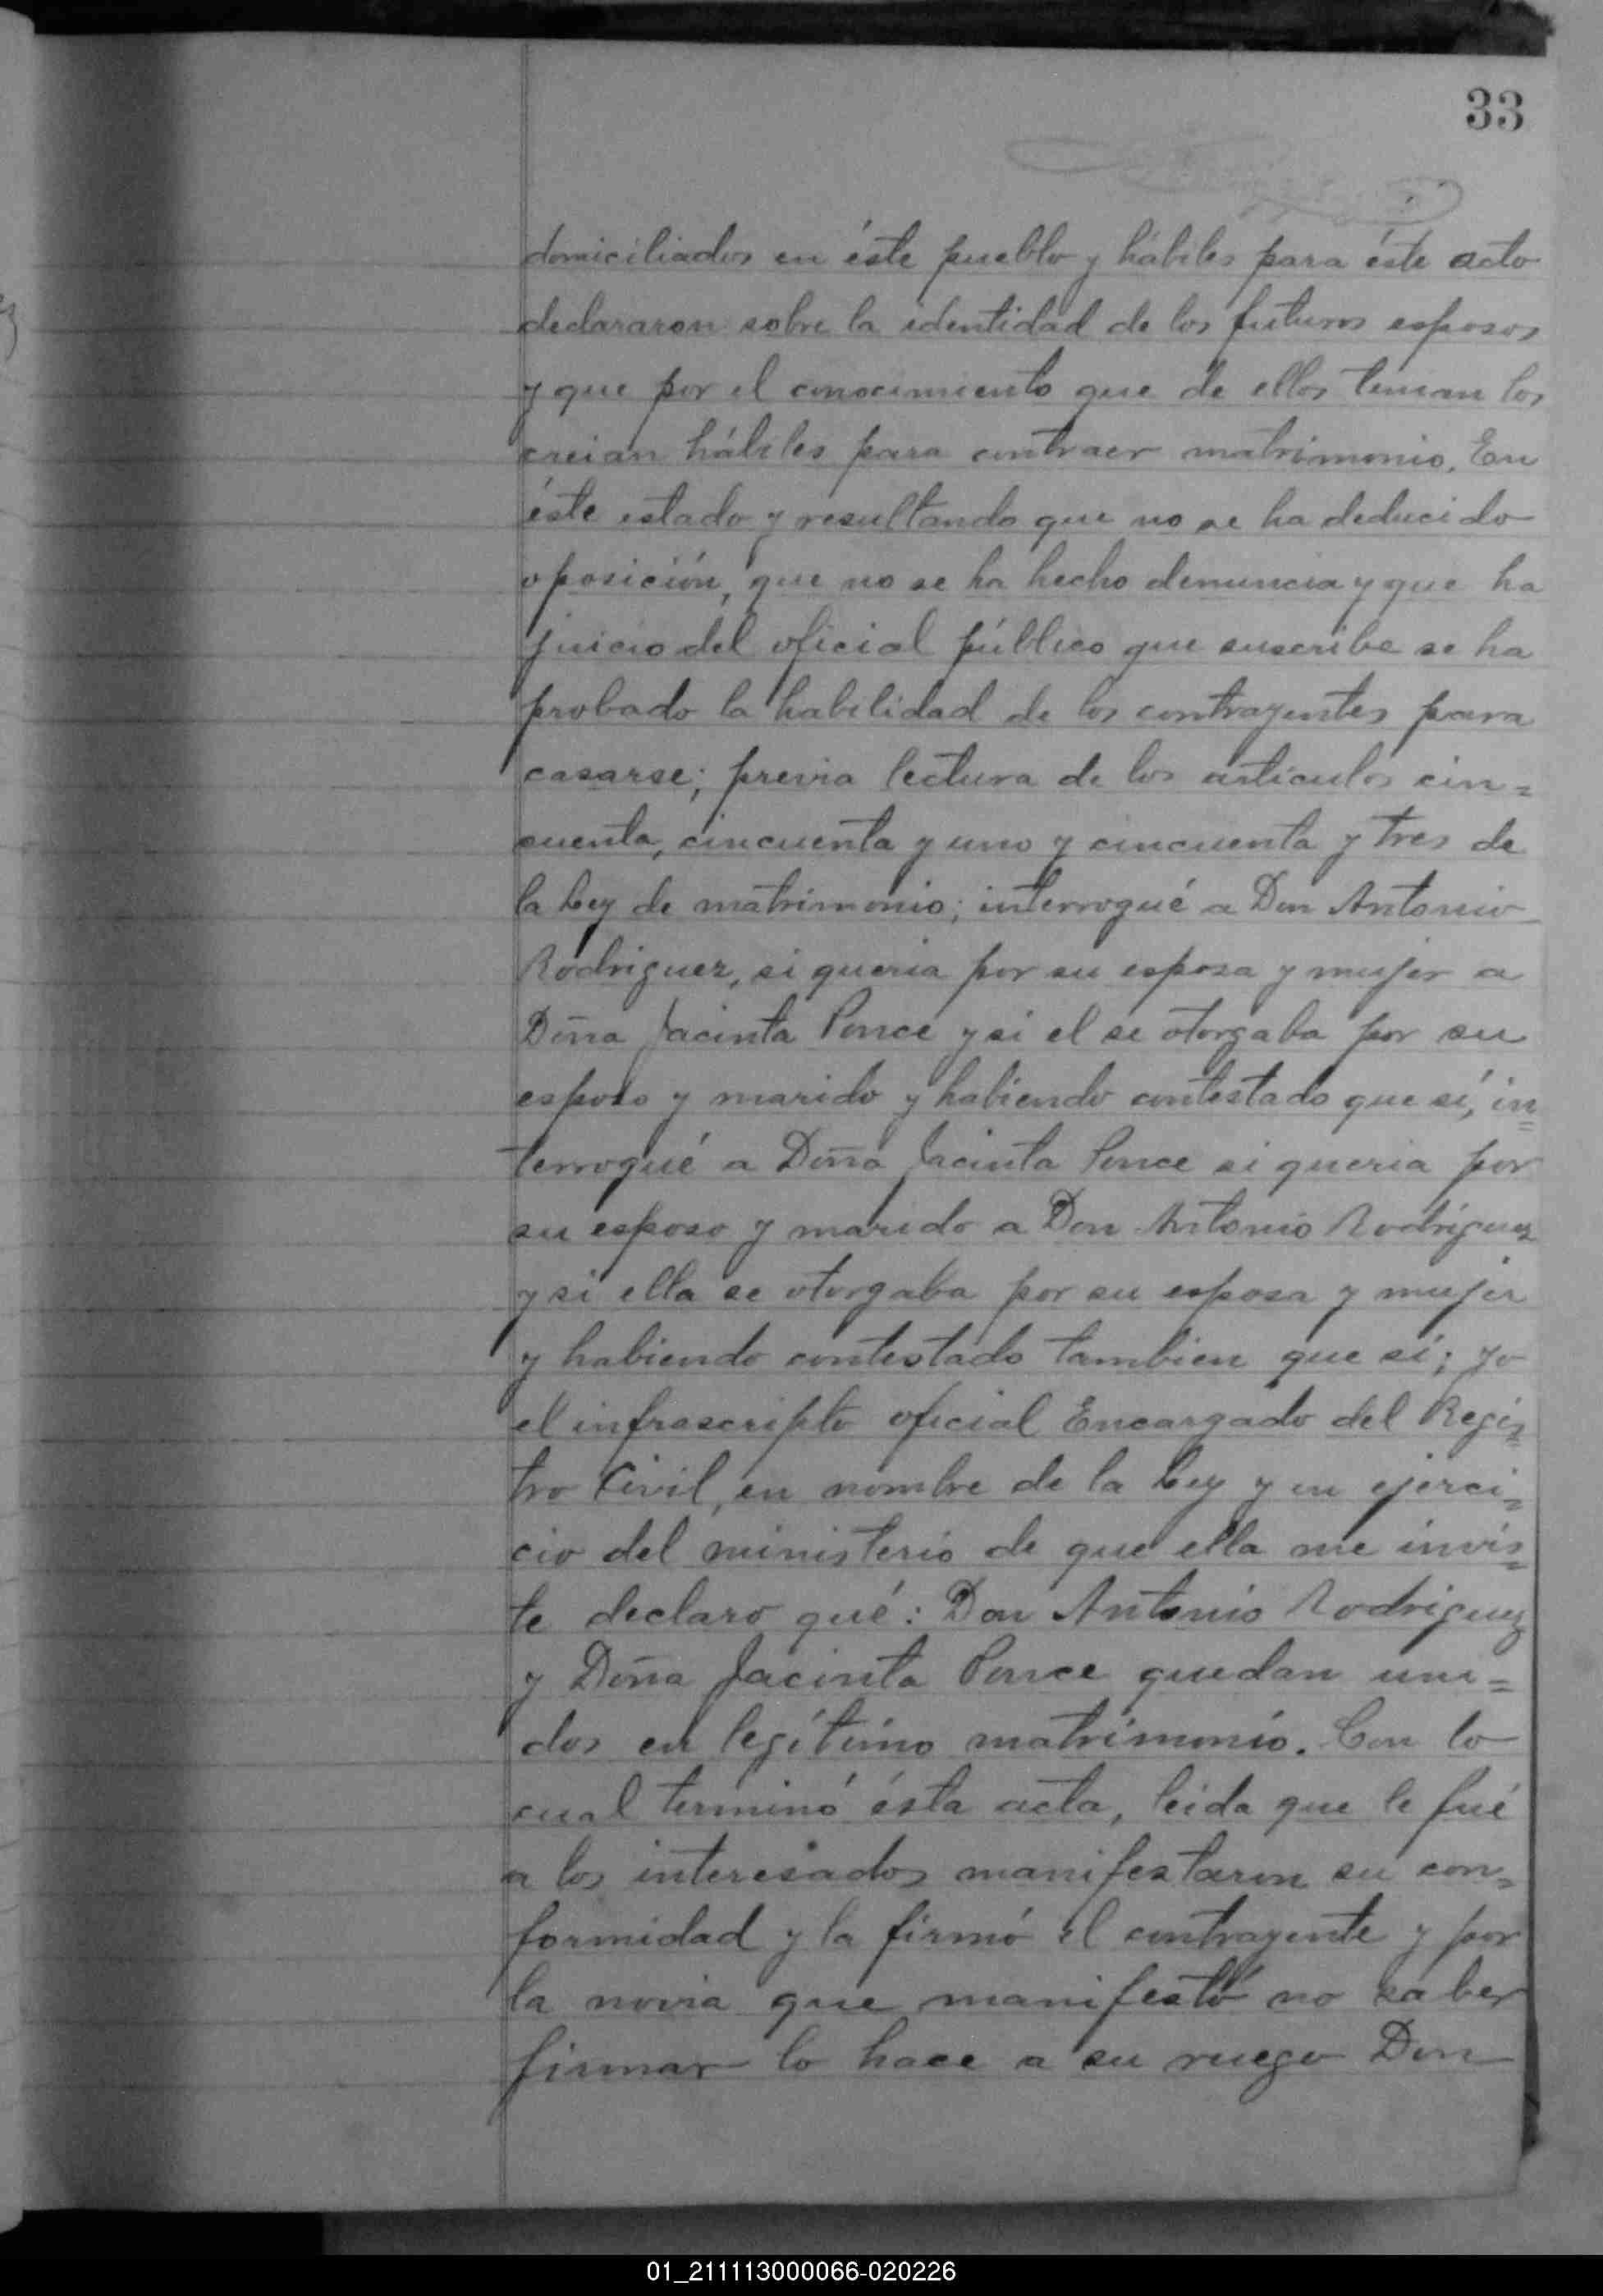 33
domiciliados en éste pueblo y hábiles para éste acto
declararon sobre la identidad de los futuros esposos
y que por el conocimiento que de ellos tenian los
creian hábiles para contraer matrimonio. En
éste estado y resultando que no se ha deducido
oposición, que no se ha hecho denuncia y que ha
juicio del oficial público que suscribe se ha
probado la habilidad de los contrayentes para
casarse; previa lectura de los artículos cin=
cuenta, cincuenta y uno y cincuenta y tres de
la Ley de matrimonio; interrogué a Don Antonio
Rodriguez, si queria por su esposa y mujer a
Doña Jacinta Ponce y si el se otorgaba por su
esposo y marido y habiendo contestado que sí, in=
terrogué a Doña Jacinta Ponce si queria por
su esposo y marido a Don Antonio Rodríguez
y si ella se otorgaba por su esposa y mujer
y habiendo contestado tambien que sí; yo
el infrascripto oficial Encargado del Regis=
tro Civil, en nombre de la Ley y en ejerci=
cio del ministerio de que ella me invis=
te declaro qué: Don Antonio Rodriguez
y Doña Jacinta Ponce quedan uni=
dos en legítimo matrimonio. Con lo
cual terminó ésta acta, leida que le fué
a los interesados manifestaron su con=
formidad y la firmó el contrayente y por
la novia que manifestó no saber
firmar lo hace a su ruego Don
01_211113000066-020226